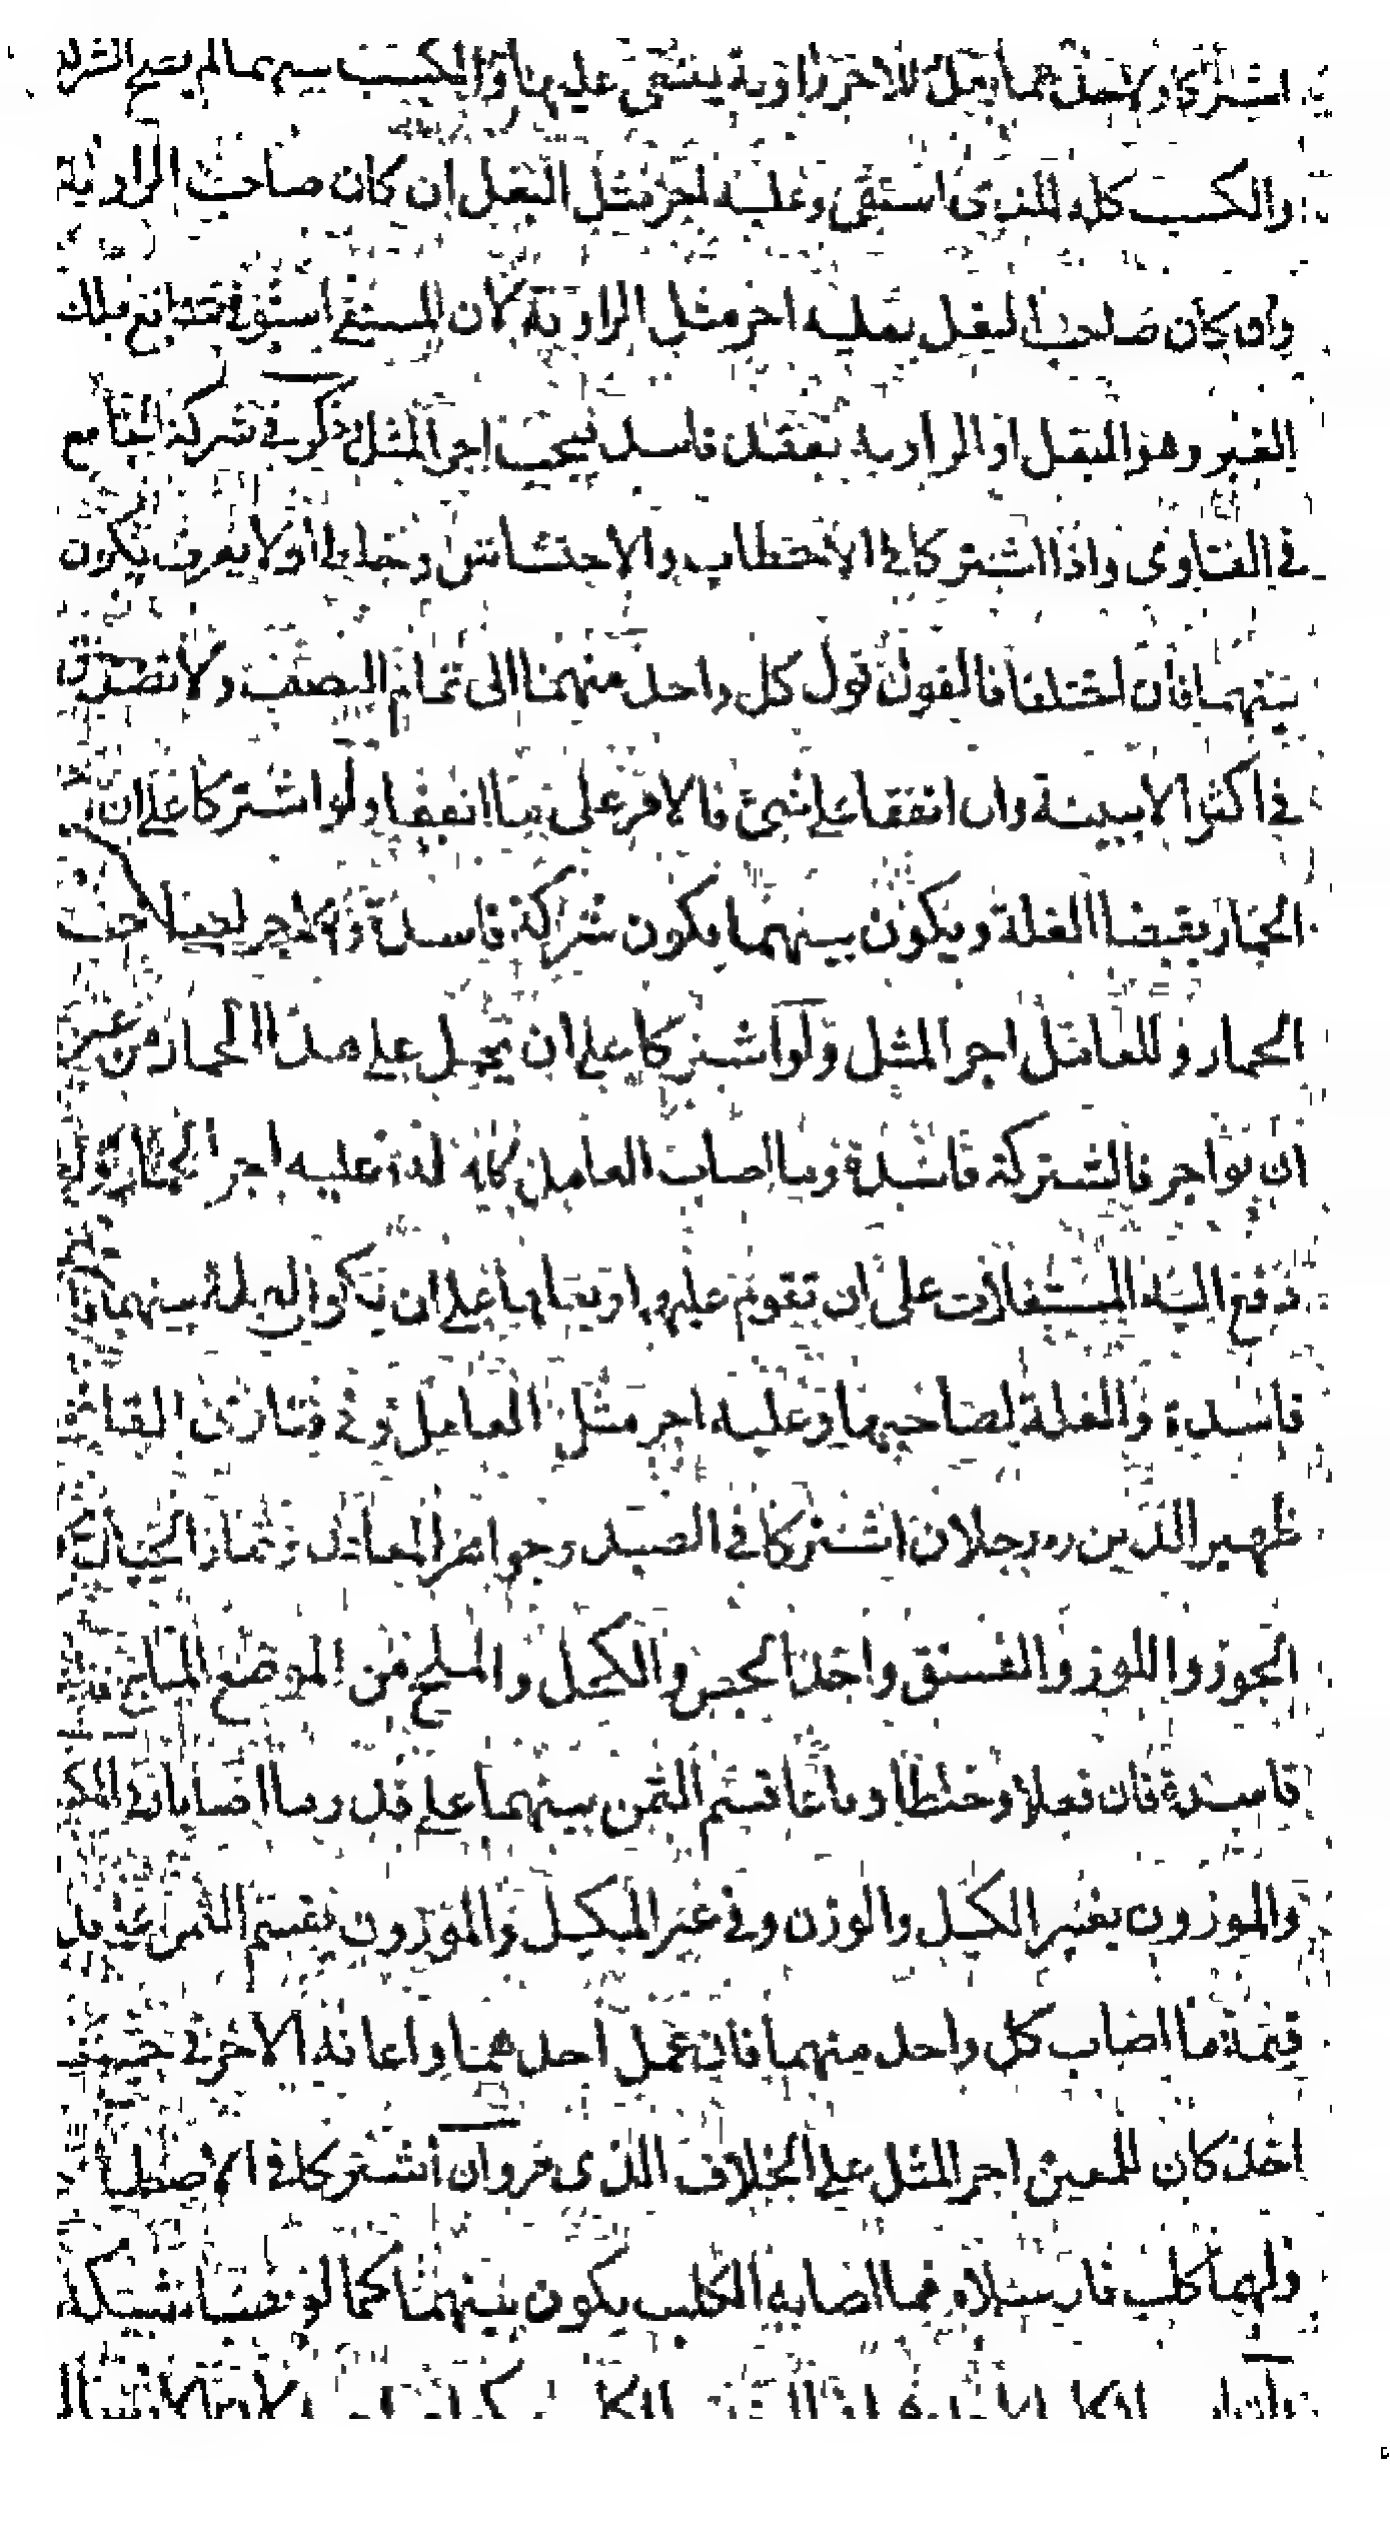 اشتركا ولاحدهما بغل وللاخر راوية يستقى عليها والكسب بينهما لم يصح الشركة
والكسب كله للذى استقى وعليه اجر مثل البغل ان كان صاحب الراوية
وان كان صاحب البغل فعليه اجر مثل الراوية لان المستقى استوفى منافع ملك
الغير وهو البغل او الراوية بعقد فاسد فيجب اجر المثل ذكر فى شركة الجامع
فى الفتاوى واذا اشتركا فى الاحتطاب والاحتشاش وخلطا اولا يعرف يكون
بينهما فان اختلفا فالقول قول كل واحد منهما الى تمام النصف ولا تصدق
فى اكثر الا ببينة وان اتفقا على شئ فالامر على ما اتفقا ولو اشتركا على ان
الحمار يقبضا الغلة ويكون بينهما يكون شركة فاسدة والاجر لصاحب
الحمار وللعامل اجر المثل ولو اشتركا على ان يحمل على هذا الحمار من غير
ان يواجر فالشركة فاسدة وما اصاب العامل كان له وعليه اجر الحمار ولو
دفع اليه المستغلات على ان تقوم عليها وتعاهدها على ان يكون الغلة بينهما
فاسدة والغلة لصاحبها وعليه اجر مثل العامل وفى فتاوى القا
ظهير الدين ره رجلان اشتركا فى الصيد وجواهر المعادن وثمار الجبال
الجوز واللوز والفستق واخذ الجص والكحل والملح من الموضع المباح
فاسدة فان فعلا وخلطا وباعا قسم الثمن بينهما على قدر ما اصابا فى المكيل
والموزون بغير الكيل والوزن وفى غير المكيل والموزون يقسم الثمن على قدر
قيمة ما اصاب كل واحد منهما فان عمل احدهما واعانه الاخر فى جميع
اخذ كان للمعين اجر المثل على الخلاف الذى مر وان اشتركا فى الاصطيا
ولهما كلب فارسلاه فما اصابه الكلب يكون بينهما كما لو نصبا شبكة